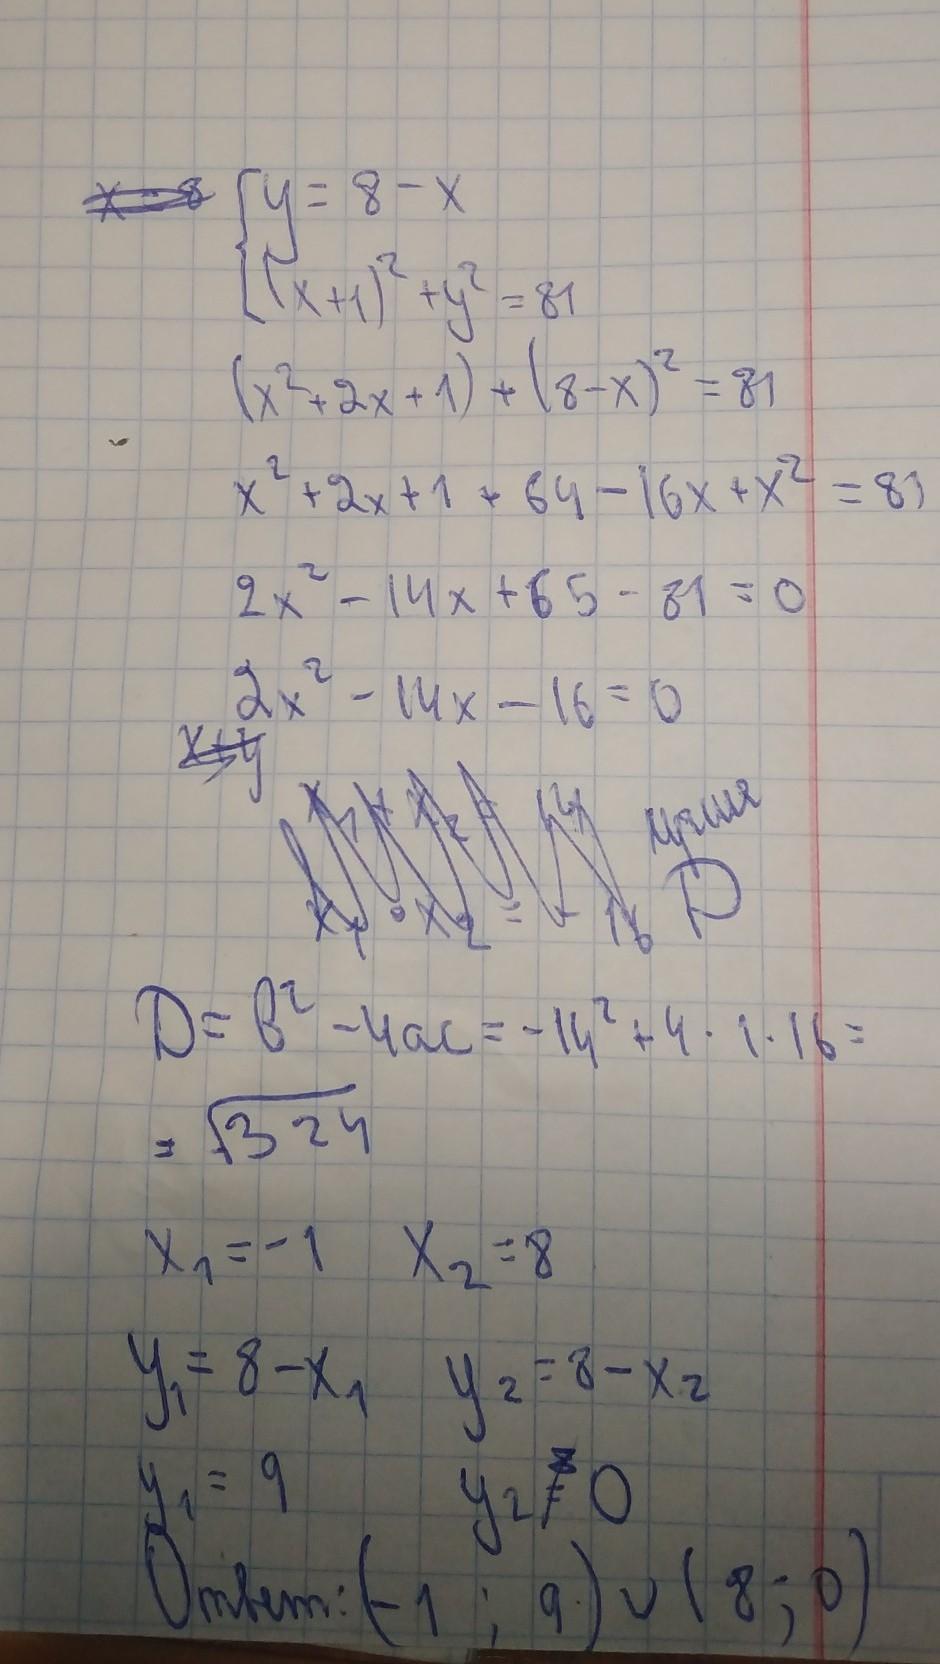 y = 8 - x
(x+1)² + y² = 81
(x² + 2x + 1) + (8-x)² = 81
x² + 2x + 1 + 64 - 16x + x² = 81
2x² - 14x + 65 - 81 = 0
2x² - 14x - 16 = 0
D
D = b² - 4ac = -14² + 4 · 1 · 16 =
= √324
x₁ = -1 x₂ = 8
y₁ = 8 - x₁ y₂ = 8 - x₂
y₁ = 9 y₂ = 0
Ответ: (-1 ; 9) ∪ (8 ; 0)